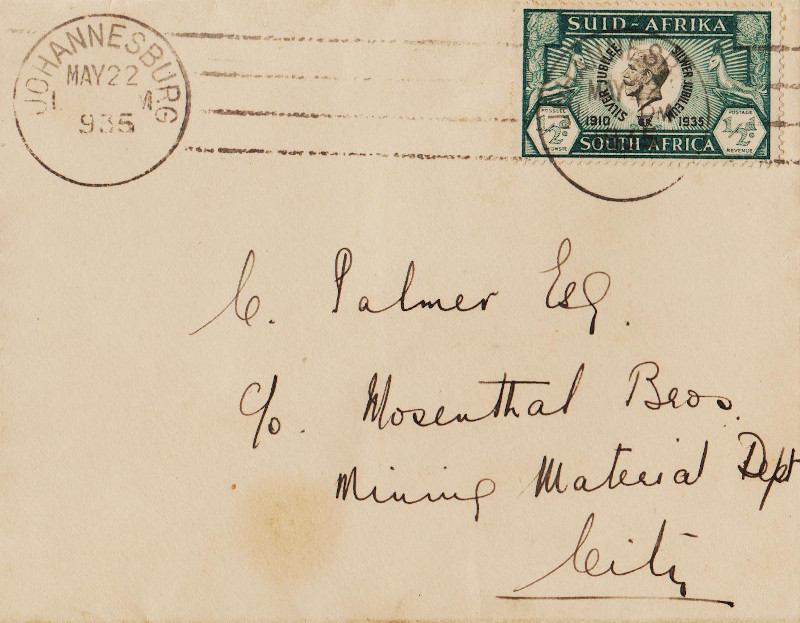 JOHANNESBURG
MAY 22
935
SUID-AFRIKA
SILVER JUBILEE SILVER JUBILEUM
1910 1935
POSSEËL POSTAGE
½ ½
REVENUE
SOUTH AFRICA
C. Palmer Esq.
c/o. Mosenthal Bros.
Mining Material Dept
City